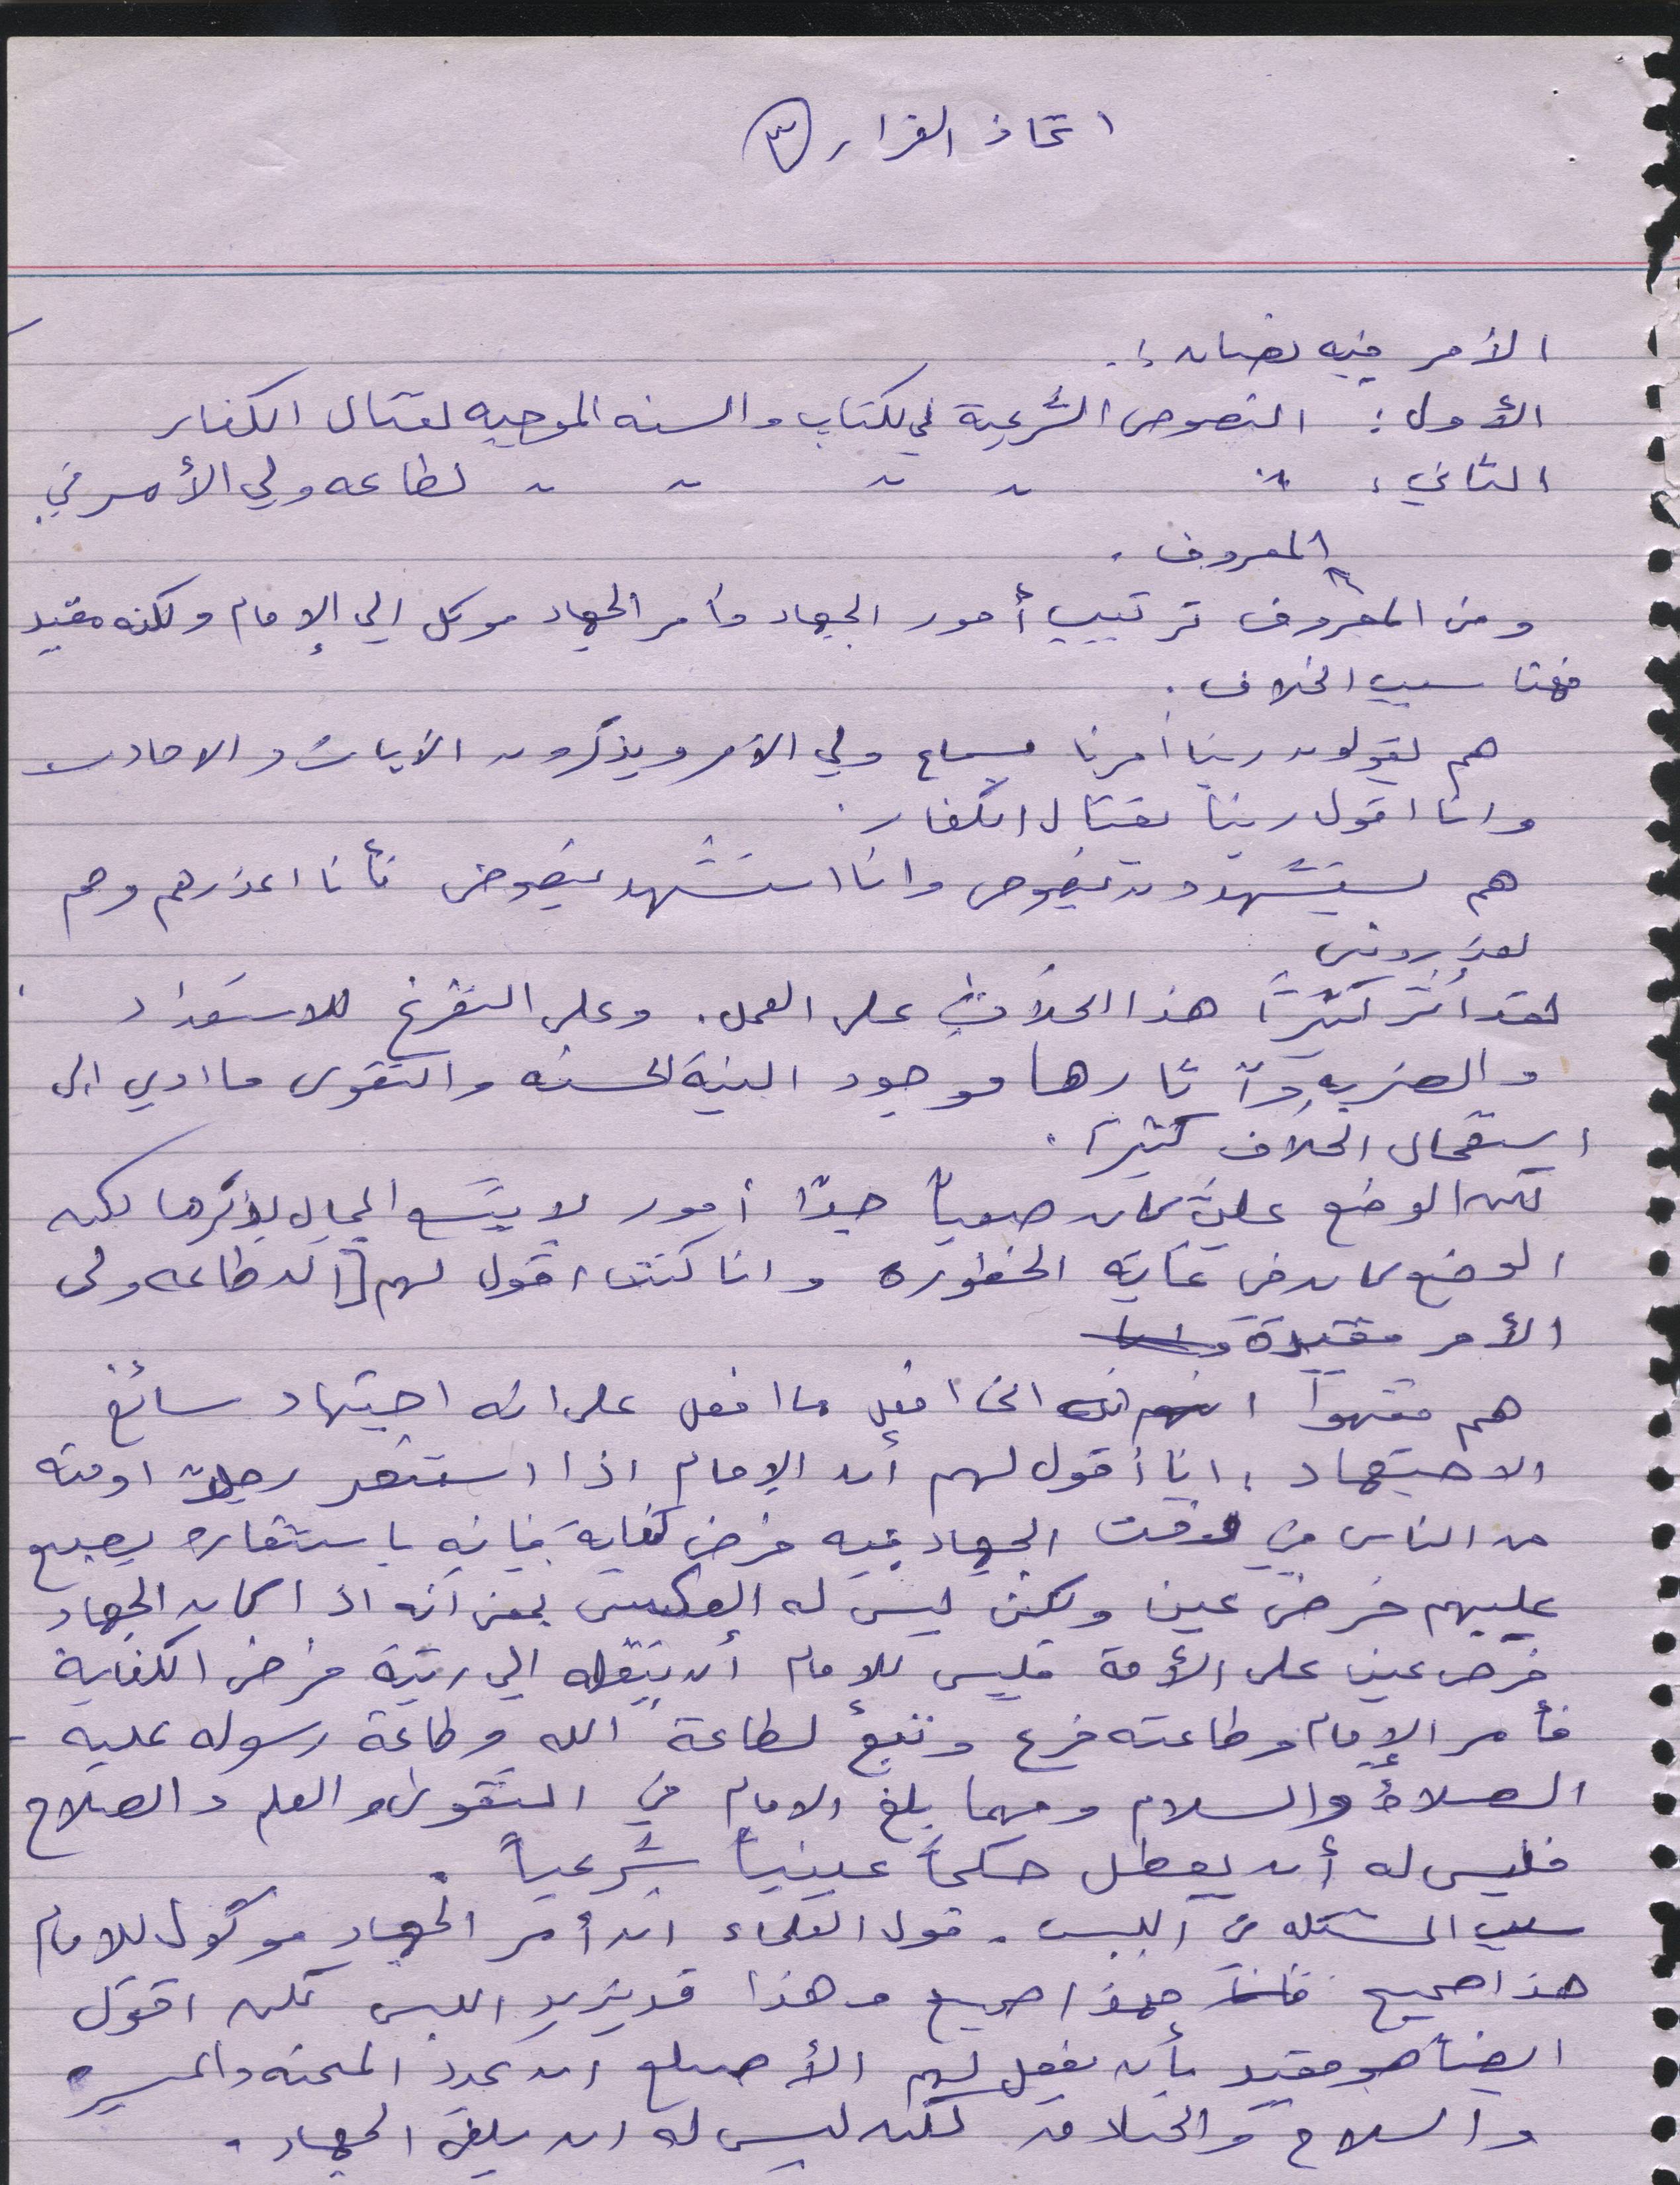 اتخاذ القرار ٣
الأمر فيه نصان :.
الأول : النصوص الشرعية في الكتاب والسنه الموجبه لقتال الكفار
الثاني : " " " " " لطاعه ولي الأمر في
المعروف .
ومن المعروف ترتيب أمور الجهاد وأمر الجهاد موكل الي الإمام ولكنه مقيد
فهنا سبب الخلاف .
هم يقولون ربنا أمرنا بسماع ولي الأمر ويذكرون الأيات والاحاديث
وانا اقول ربنا بقتال الكفار .
هم يستشهدون بنصوص وانا استشهد بنصوص فأنا اعذرهم وهم
يعذرونى
لقد أثر كثيراً هذا الخلاف على العمل . وعلى التفرغ للاستعداد
والضربه وآثارها وجود النية الحسنه والتقوى ما ادي الى
استفحال الخلاف كثيراً .
لكن الوضع علينا كان صعباً جداً أمور لا يتسع المجال لذكرها لكن
الوضع كان في غاية الخطوره وانا كنت اقول لهم ان طاعه ولى
الأمر مقيدة
هم فقهوا اننى افعل ما افعل على انه اجتهاد سائغ
الاجتهاد ، انا أقول لهم أن الإمام اذا استنفر رجلاً او فئه
من الناس في وقت الجهاد فيه فرض كفاية فإنه باستنفاره يصبح
عليهم فرض عين ولكن ليس له العكس بمعنى أنه اذا كان الجهاد
فرض عين على الأمة فليس للإمام أن ينقله الي رتبة فرض الكفاية
فأمر الإمام وطاعته فرع وتبع لطاعة الله وطاعة رسوله عليه
الصلاة والسلام ومهما بلغ الامام في التقوى والعلم والصلاح
فليس له أن يعطل حكماً عينياً شرعياً .
سبب المشكله في اللبس . قول العلماء ان أمر الجهاد موكول للامام
هذا صحيح فهذا صحيح وهذا قد يزيد اللبس لكن اقول
ايضاً هو مقيد بأن يفعل لهم الأصلح ان يحدد الميمنه والميسره
والسلاح والخلافه لكن ليس له ان يلغى الجهاد .